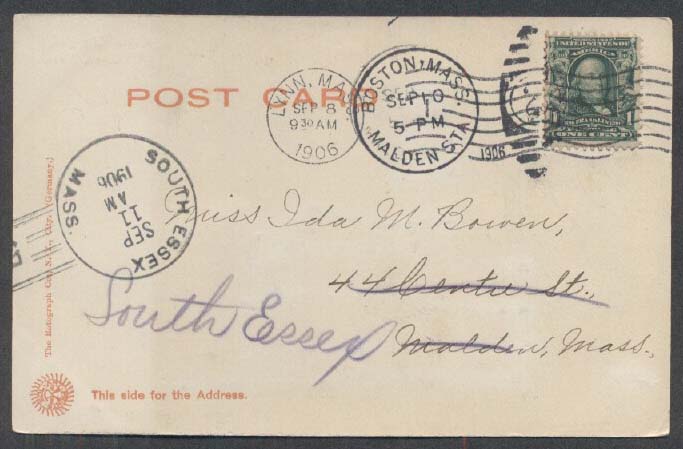 UNITED STATES OF
POST CARD
LYNN, MASS.
SEP 8
9 30 AM
1906
BOSTON, MASS.
SEP 10
5 PM
MALDEN STA.
1906
1 1
ONE CENT
SOUTH ESSEX
MASS.
SEP
11
AM
1906
Miss Ida M. Bowen,
44 Centre St.,
South Essex
Malden, Mass.,
The Rotograph Co., N.Y. City. (Germany.)
This side for the Address.